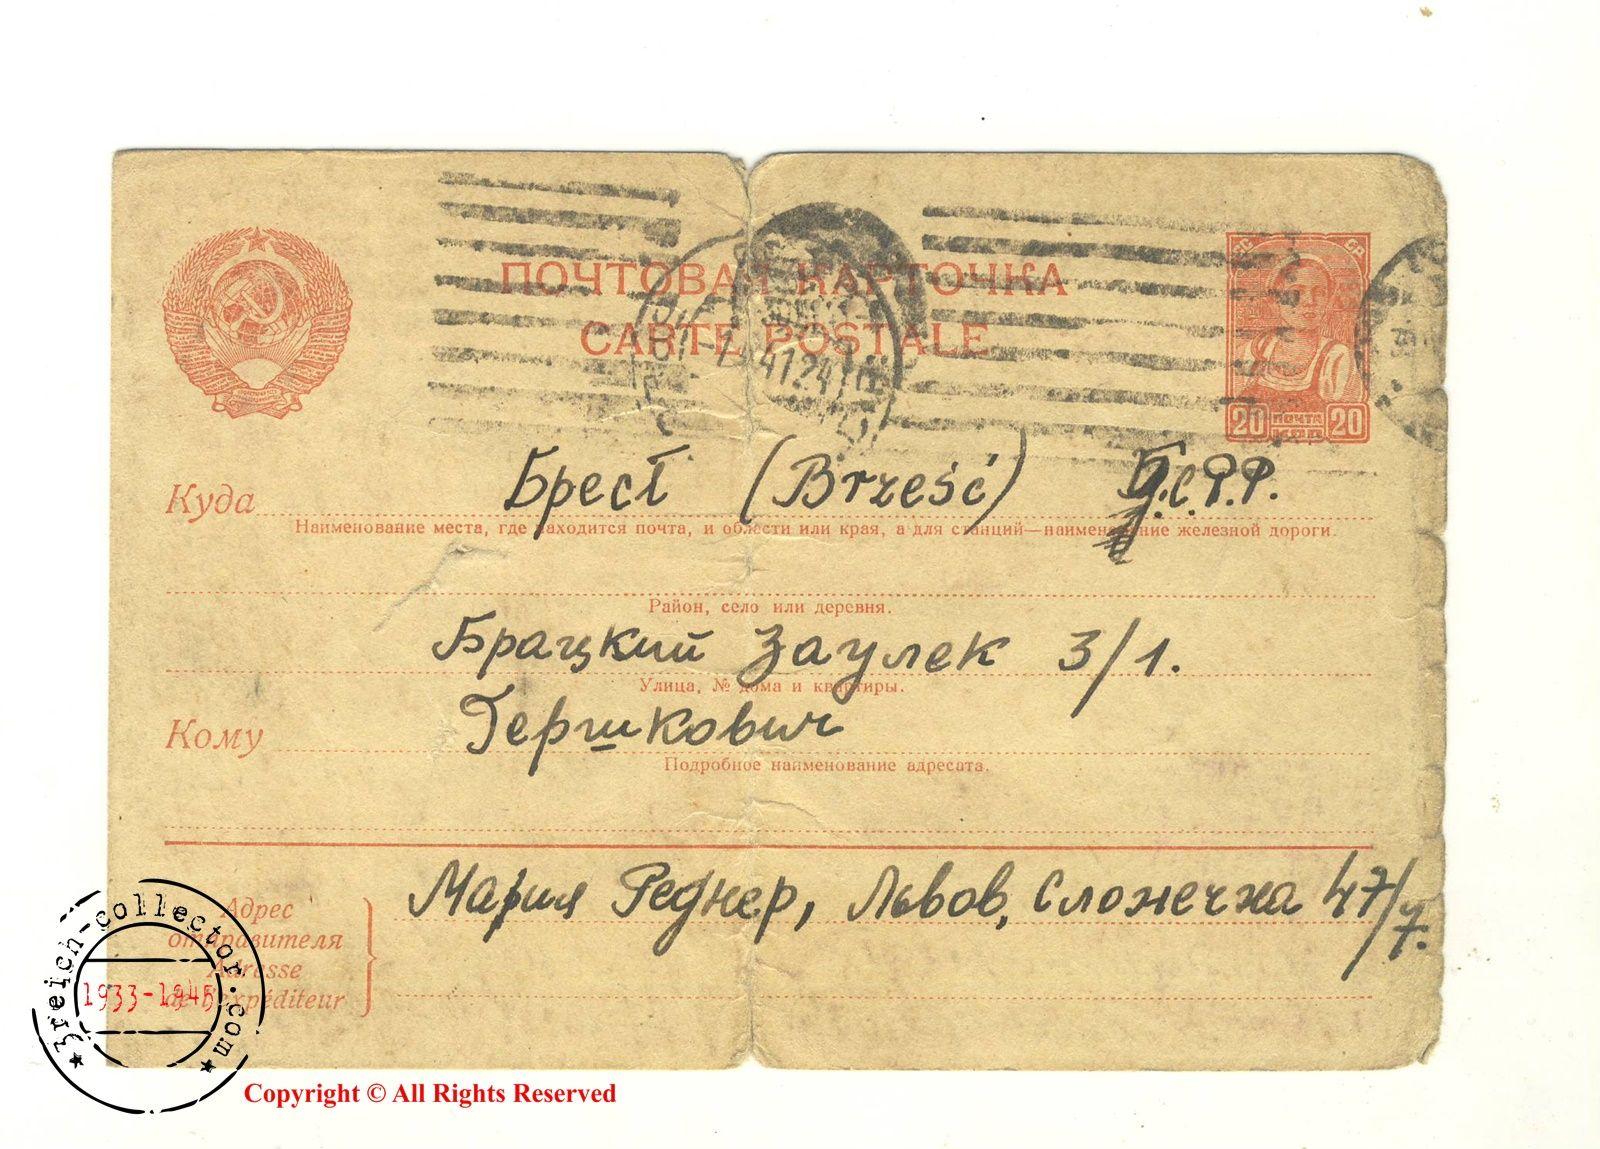 ПОЧТОВАЯ КАРТОЧКА
CARTE POSTALE
41 24
20 ПОЧТА 20
КОП
Куда Брест (Brześć) Б.С.Р.Р.
Наименование места, где находится почта, и области или края, а для станций—наименование железной дороги.
Район, село или деревня.
Брацкий Заулек 3/1.
Улица, № дома и квартиры.
Кому Гершкович
Подробное наименование адресата.
Мария Реднер, Львов, Слонечна 47/7.
Адрес
отправителя
Adresse
de l'expéditeur
3reich-collector.com
1933-1945
Copyright © All Rights Reserved